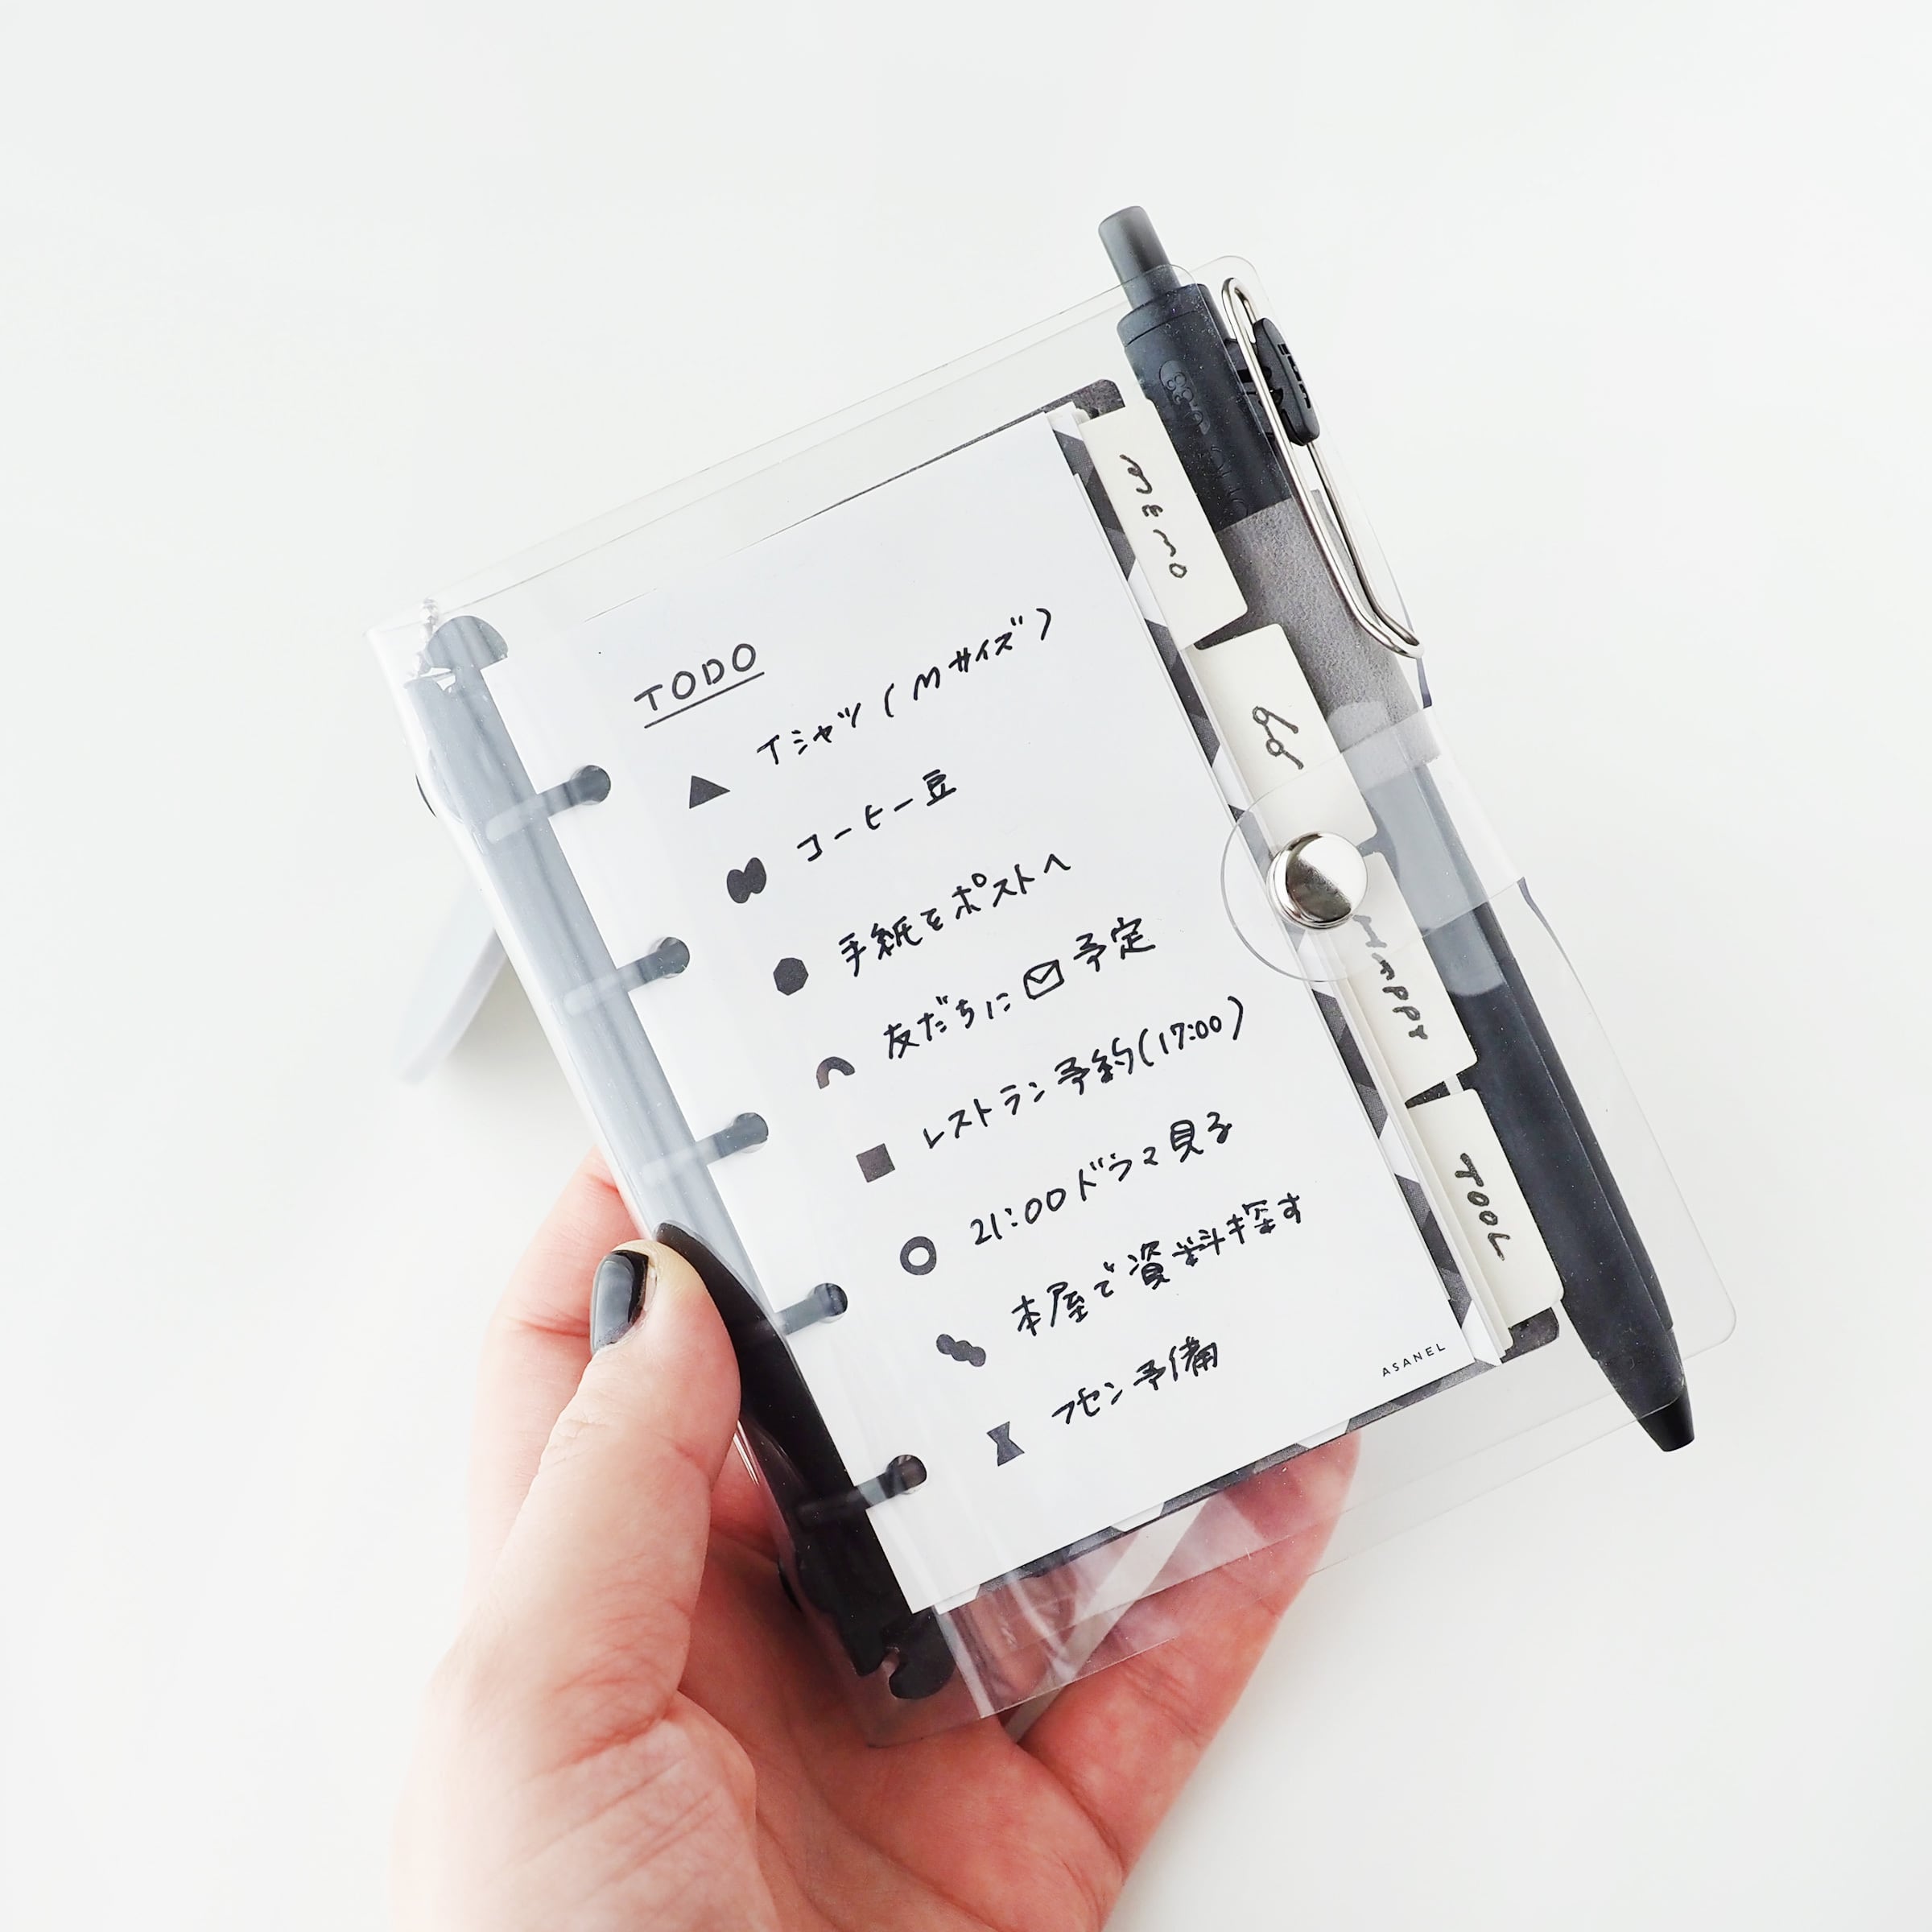 TODO
Tシャツ(Mサイズ)
コーヒー豆
手紙をポストへ
友だちに✉予定
レストラン予約(17:00)
21:00ドラマ見る
本屋で資料探す
フセン予備
ASANEL
MEMO
Happy
TOOL